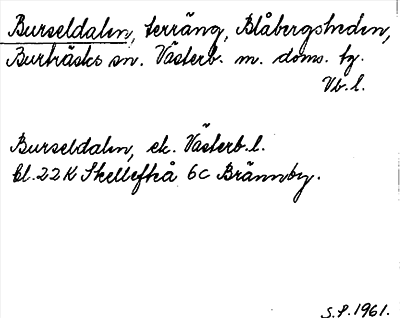 Burseldalen, terräng, Blåbergsheden,
Burträsks sn. Västerb. m. doms. tg.
Vb. l.
Burseldalen, ek. Västerb. l.
bl. 22 K Skellefteå 6 c Brännby.
S.P. 1961.